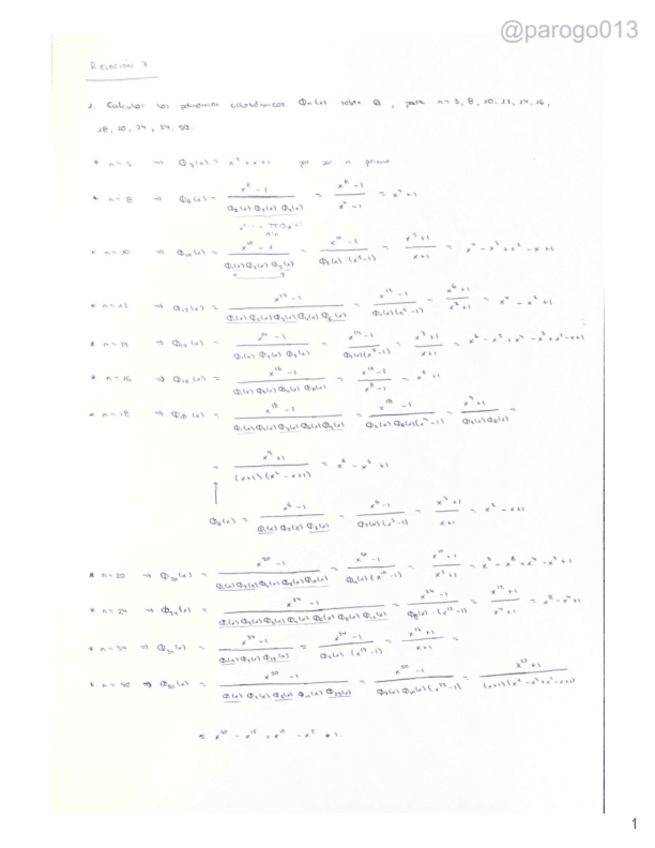 @parogo013
RELACIÓN 7
1. Calcular los polinomios ciclotómicos Φn(x) sobre Q, para n = 3, 8, 10, 12, 14, 16,
18, 20, 24, 34, 50.
* n=3 ⇒ Φ3(x) = x² + x + 1 por ser n primo
* n=8 ⇒ Φ8(x) = (x⁸ - 1) / (Φ1(x) Φ2(x) Φ4(x)) = (x⁸ - 1) / (x⁴ - 1) = x⁴ + 1
* n=10 ⇒ Φ10(x) = (x¹⁰ - 1) / (Φ1(x) Φ2(x) Φ5(x)) = (x¹⁰ - 1) / (Φ2(x)·(x⁵ - 1)) = (x⁵ + 1) / (x + 1) = x⁴ - x³ + x² - x + 1
* n=12 ⇒ Φ12(x) = (x¹² - 1) / (Φ1(x) Φ2(x) Φ3(x) Φ4(x) Φ6(x)) = (x¹² - 1) / (Φ4(x)(x⁶ - 1)) = (x⁶ + 1) / (x² + 1) = x⁴ - x² + 1
* n=14 ⇒ Φ14(x) = (x¹⁴ - 1) / (Φ1(x) Φ2(x) Φ7(x)) = (x¹⁴ - 1) / (Φ2(x)(x⁷ - 1)) = (x⁷ + 1) / (x + 1) = x⁶ - x⁵ + x⁴ - x³ + x² - x + 1
* n=16 ⇒ Φ16(x) = (x¹⁶ - 1) / (Φ1(x) Φ2(x) Φ4(x) Φ8(x)) = (x¹⁶ - 1) / (x⁸ - 1) = x⁸ + 1
* n=18 ⇒ Φ18(x) = (x¹⁸ - 1) / (Φ1(x) Φ2(x) Φ3(x) Φ6(x) Φ9(x)) = (x¹⁸ - 1) / (Φ2(x) Φ6(x)(x⁹ - 1)) = (x⁹ + 1) / (Φ2(x) Φ6(x)) =
= (x⁹ + 1) / ((x + 1)(x² - x + 1)) = x⁶ - x³ + 1
↑
Φ6(x) = (x⁶ - 1) / (Φ1(x) Φ2(x) Φ3(x)) = (x⁶ - 1) / (Φ2(x)(x³ - 1)) = (x³ + 1) / (x + 1) = x² - x + 1
* n=20 ⇒ Φ20(x) = (x²⁰ - 1) / (Φ1(x) Φ2(x) Φ4(x) Φ5(x) Φ10(x)) = (x²⁰ - 1) / (Φ4(x)(x¹⁰ - 1)) = (x¹⁰ + 1) / (x² + 1) = x⁸ - x⁶ + x⁴ - x² + 1
* n=24 ⇒ Φ24(x) = (x²⁴ - 1) / (Φ1(x) Φ2(x) Φ3(x) Φ4(x) Φ6(x) Φ8(x) Φ12(x)) = (x²⁴ - 1) / (Φ8(x)·(x¹² - 1)) = (x¹² + 1) / (x⁴ + 1) = x⁸ - x⁴ + 1
* n=34 ⇒ Φ34(x) = (x³⁴ - 1) / (Φ1(x) Φ2(x) Φ17(x)) = (x³⁴ - 1) / (Φ2(x)·(x¹⁷ - 1)) = (x¹⁷ + 1) / (x + 1) =
* n=50 ⇒ Φ50(x) = (x⁵⁰ - 1) / (Φ1(x) Φ2(x) Φ5(x) Φ10(x) Φ25(x)) = (x⁵⁰ - 1) / (Φ2(x) Φ10(x)(x²⁵ - 1)) = (x²⁵ + 1) / ((x + 1)(x⁴ - x³ + x² - x + 1))
= x²⁰ - x¹⁵ + x¹⁰ - x⁵ + 1.
1